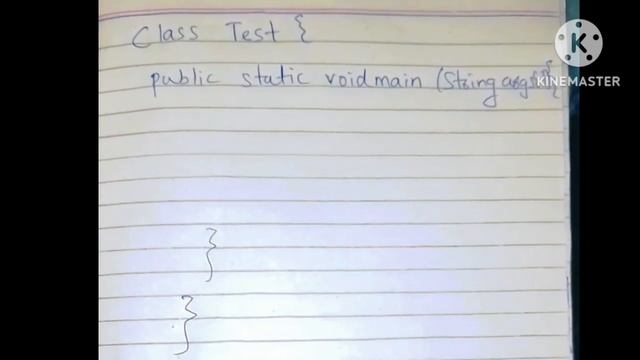 Class Test {
public static voidmain (String args[]{
}
}
K
KINEMASTER